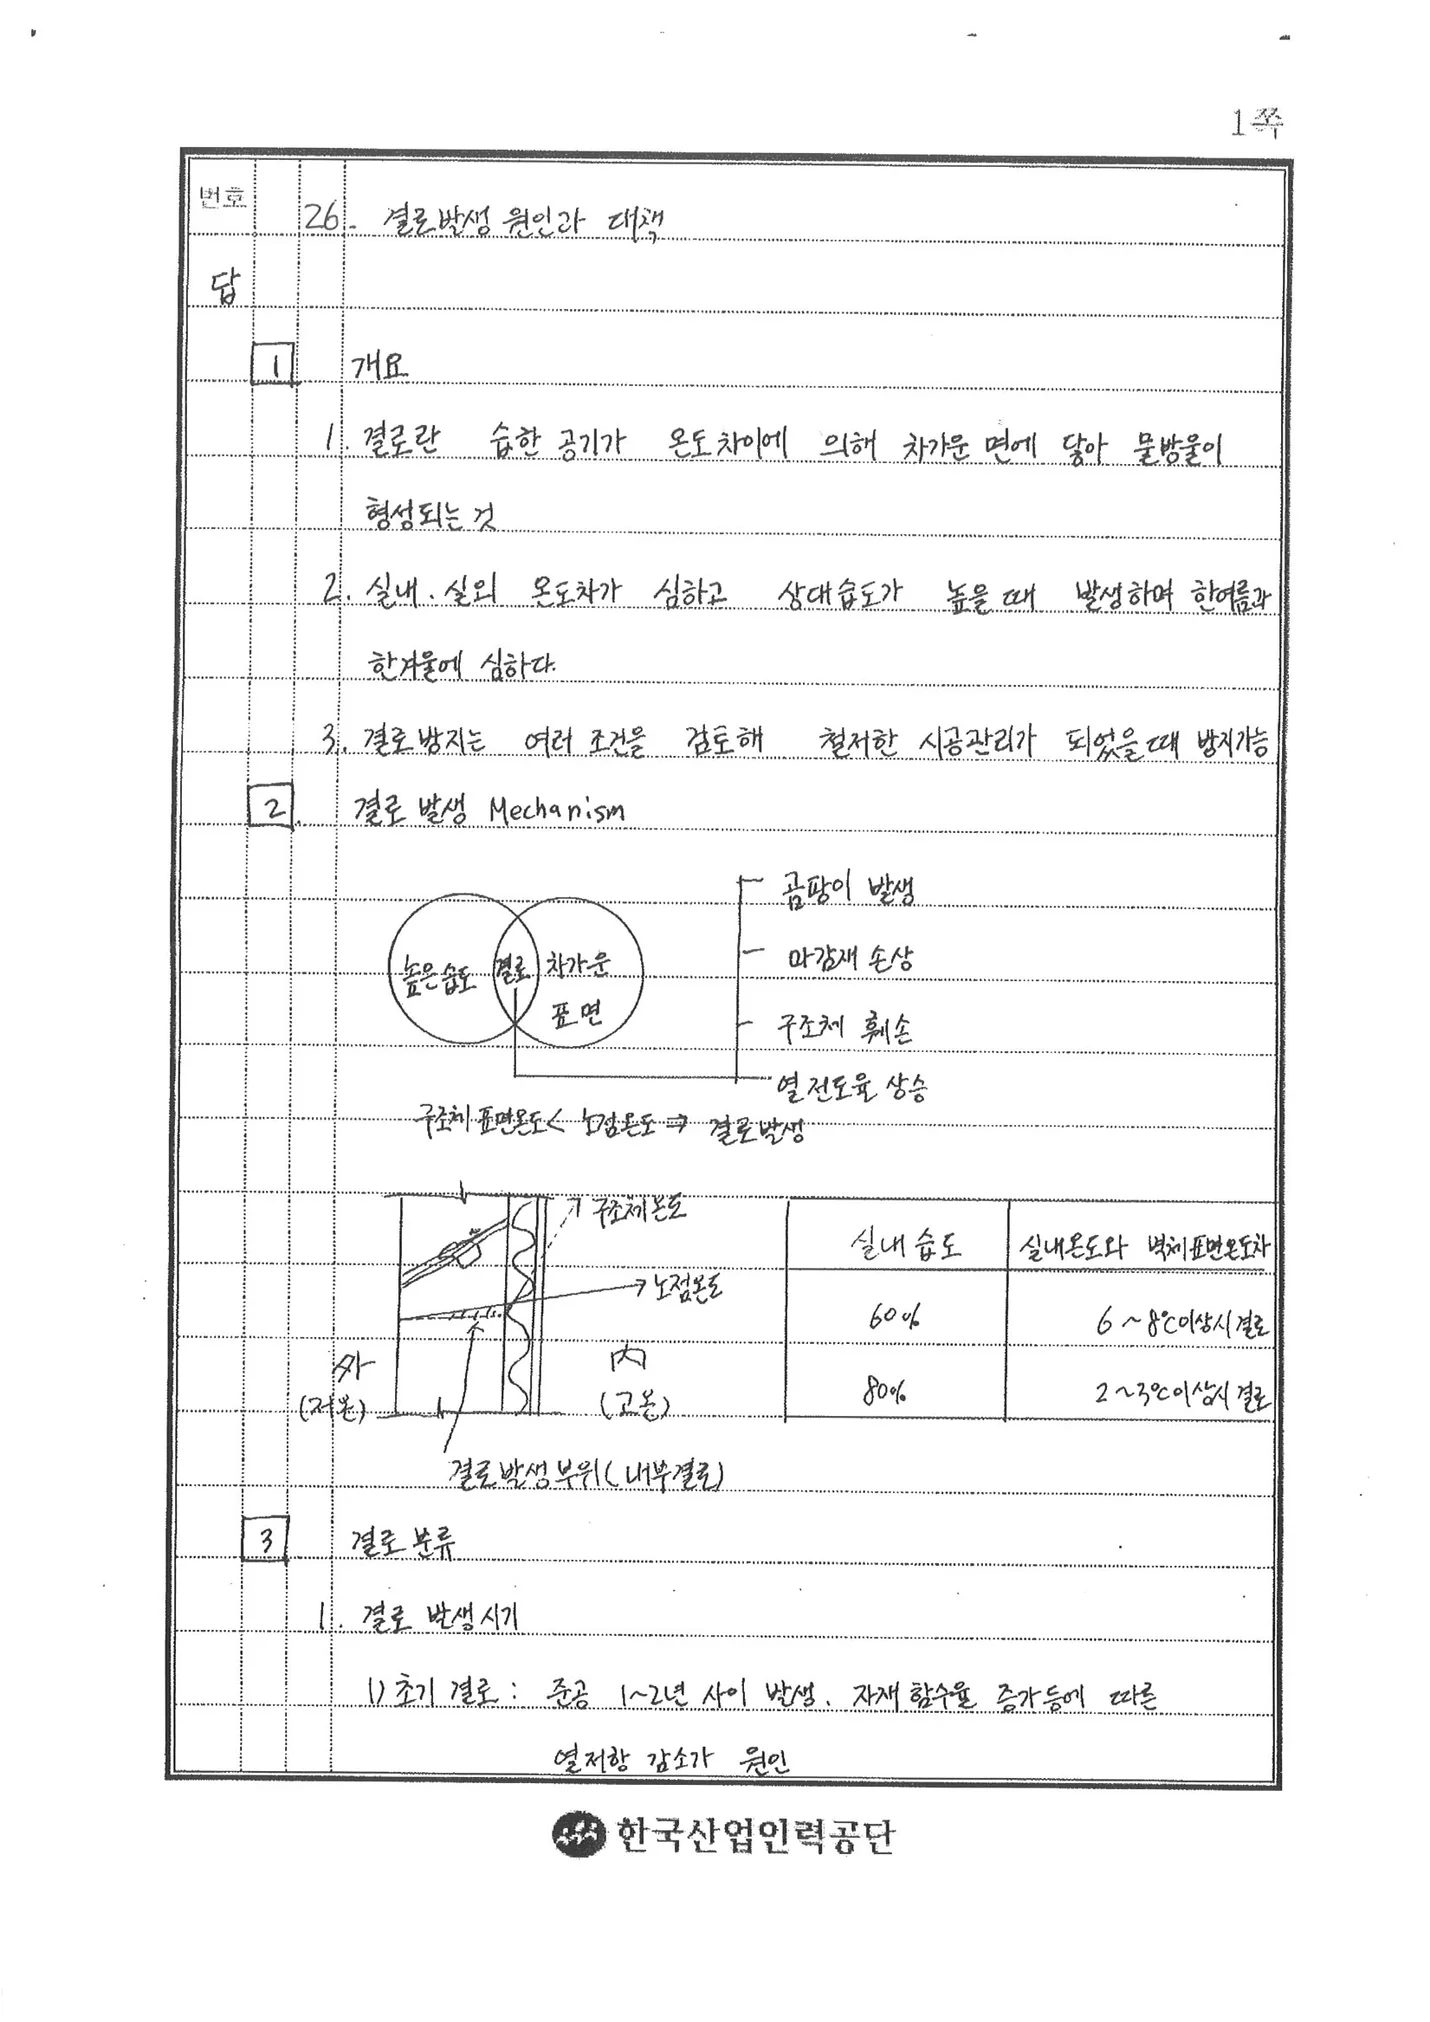 1쪽
번호
26. 결로발생 원인과 대책
답
1 개요
1. 결로란 습한 공기가 온도차이에 의해 차가운 면에 닿아 물방울이
형성되는 것
2. 실내.실외 온도차가 심하고 상대습도가 높을 때 발생하며 한여름과
한겨울에 심하다.
3. 결로방지는 여러 조건을 검토해 철저한 시공관리가 되었을때 방지가능
2. 결로 발생 Mechanism
높은습도 결로 차가운
표면
곰팡이 발생
마감재 손상
구조체 훼손
열전도율 상승
구조체 표면온도 < 노점온도 ⇒ 결로발생
구조체온도
노점온도
外
(저온)
内
(고온)
결로발생부위(내부결로)
실내습도 실내온도와 벽체표면온도차
60% 6~8℃이상시 결로
80% 2~3℃이상시 결로
3 결로 분류
1. 결로 발생시기
1) 초기 결로 : 준공 1~2년 사이 발생. 자재 함수율 증가등에 따른
열저항 감소가 원인
한국산업인력공단